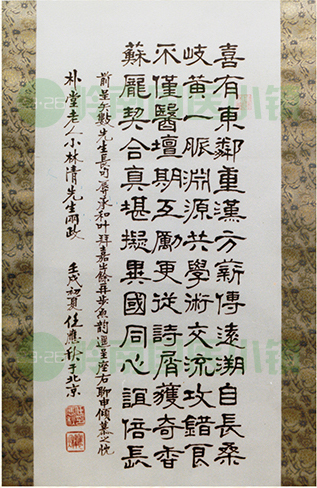 喜有東鄰重漢方薪傳遠溯自長桑
岐黃一脈淵源共學術交流攻錯良
不僅醫壇期互勵更從詩屑獲奇香
蘇龐契合真堪擬異國同心誼倍長
前呈矢數先生長句辱承和叶拜嘉之餘再步原韵遄呈座右聊申傾慕之忱
朴堂老人小林清先生哂政
壬戌初夏任應秋于北京
岭南国医小镇